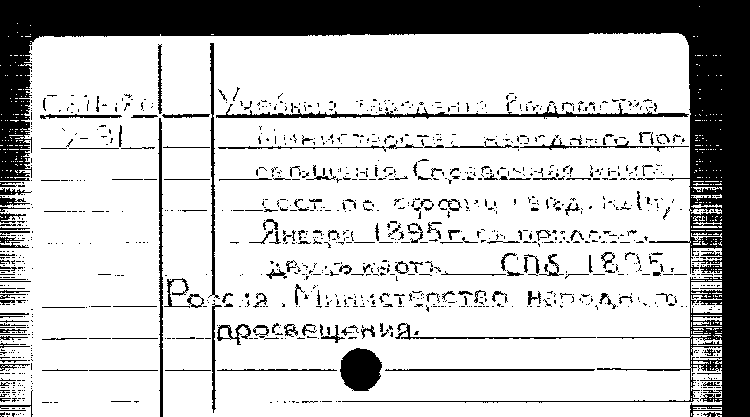 Учебныя заведенія Вѣдомства
У-91 Министерства народнаго про
свѣщенія. Справочная книга,
сост. по оффиц. свѣд. къ 1му
Января 1895г. съ прилож.
двухъ картъ. СПб, 1895.
Россія. Министерство народнаго
просвещения.